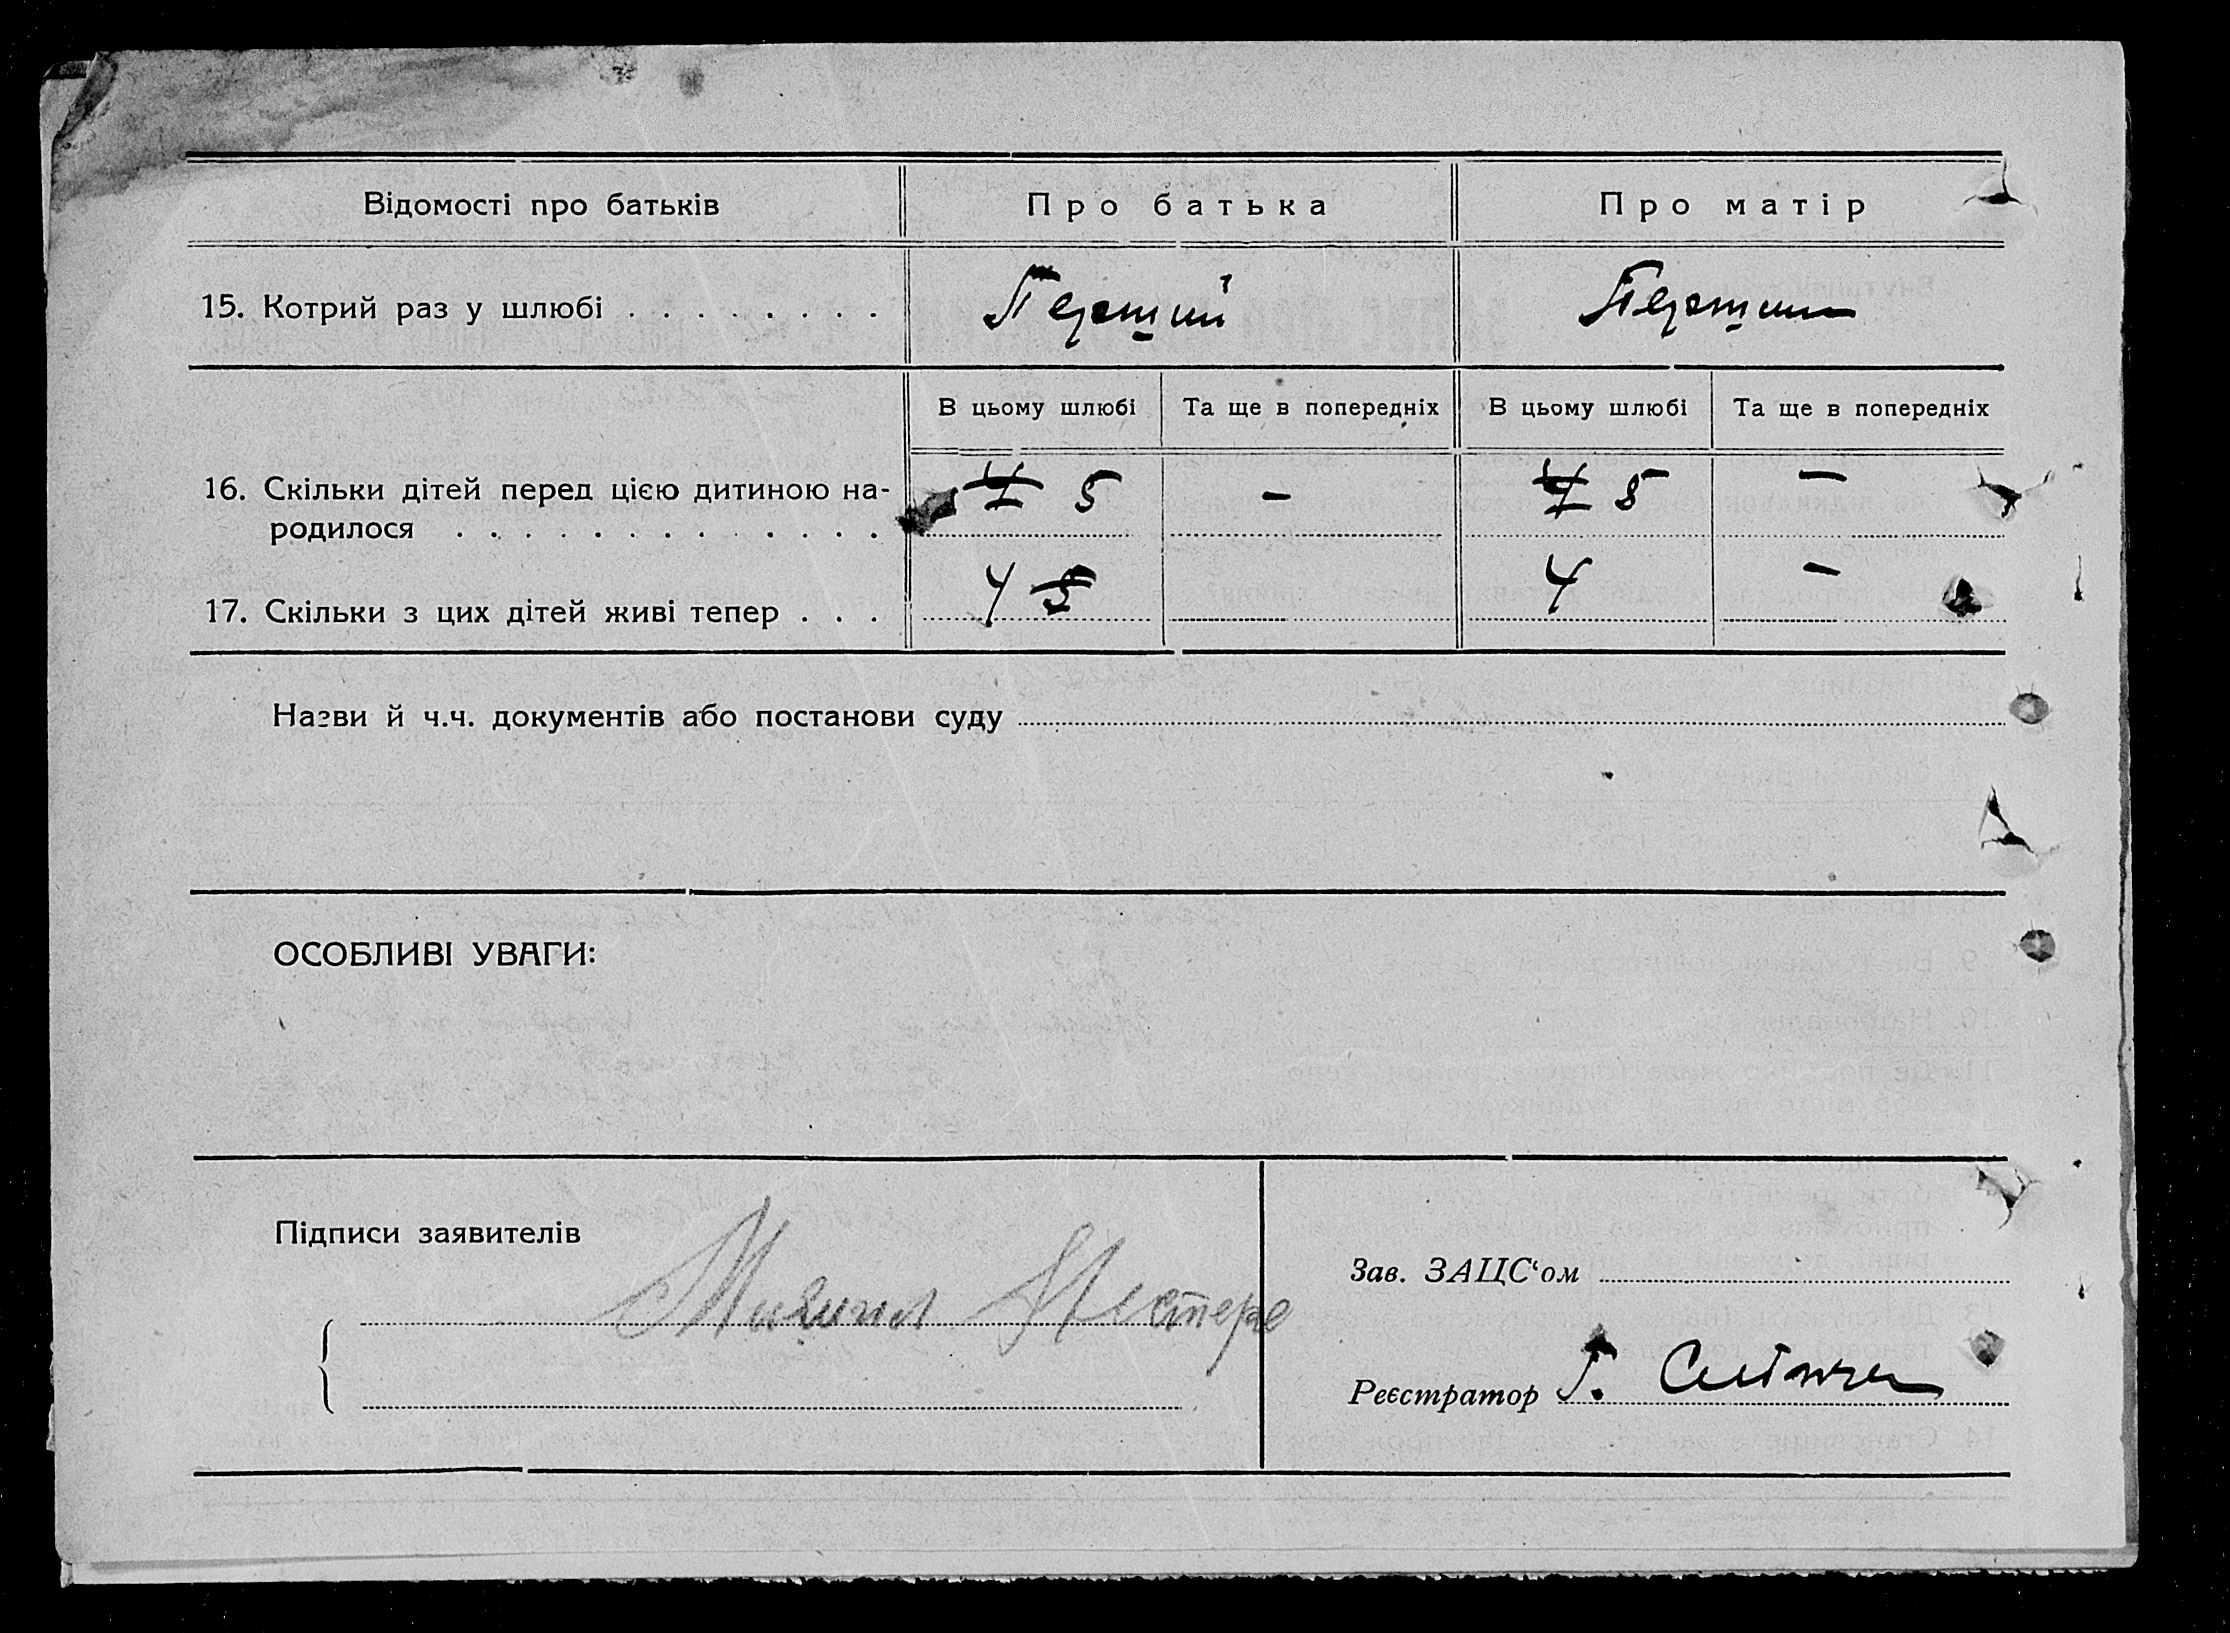 Відомості про батьків Про батька Про матір
15. Котрий раз у шлюбі . . . . . . . . Перший Перший
В цьому шлюбі Та ще в попередніх В цьому шлюбі Та ще в попередніх
16. Скільки дітей перед цією дитиною на-
родилося . . . . . . . . . . . . . 4 5 - 4 5 -
17. Скільки з цих дітей живі тепер . . . 4 5 4 -
Назви й ч.ч. документів або постанови суду
ОСОБЛИВІ УВАГИ:
Підписи заявителів
Зав. ЗАЦС‘ом
Реєстратор Г.